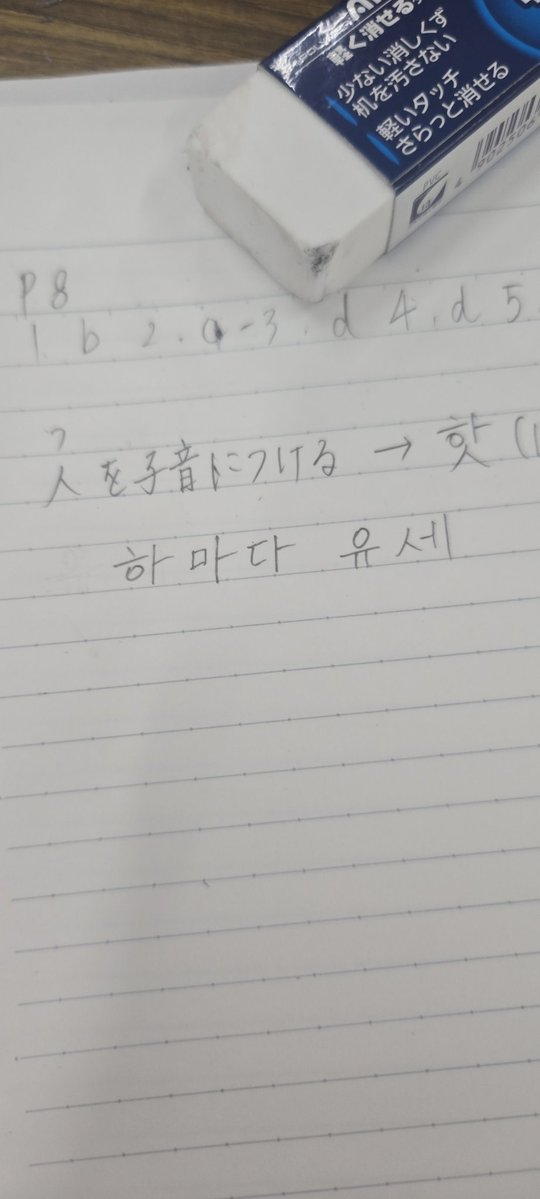 軽く消せる
少ない消しくず
机を汚さない
軽いタッチ
さらっと消せる
PVC
P8
1. b 2. a - 3. d 4. d 5
つ
ㅅを子音につける → 핫 (
하마다 유세